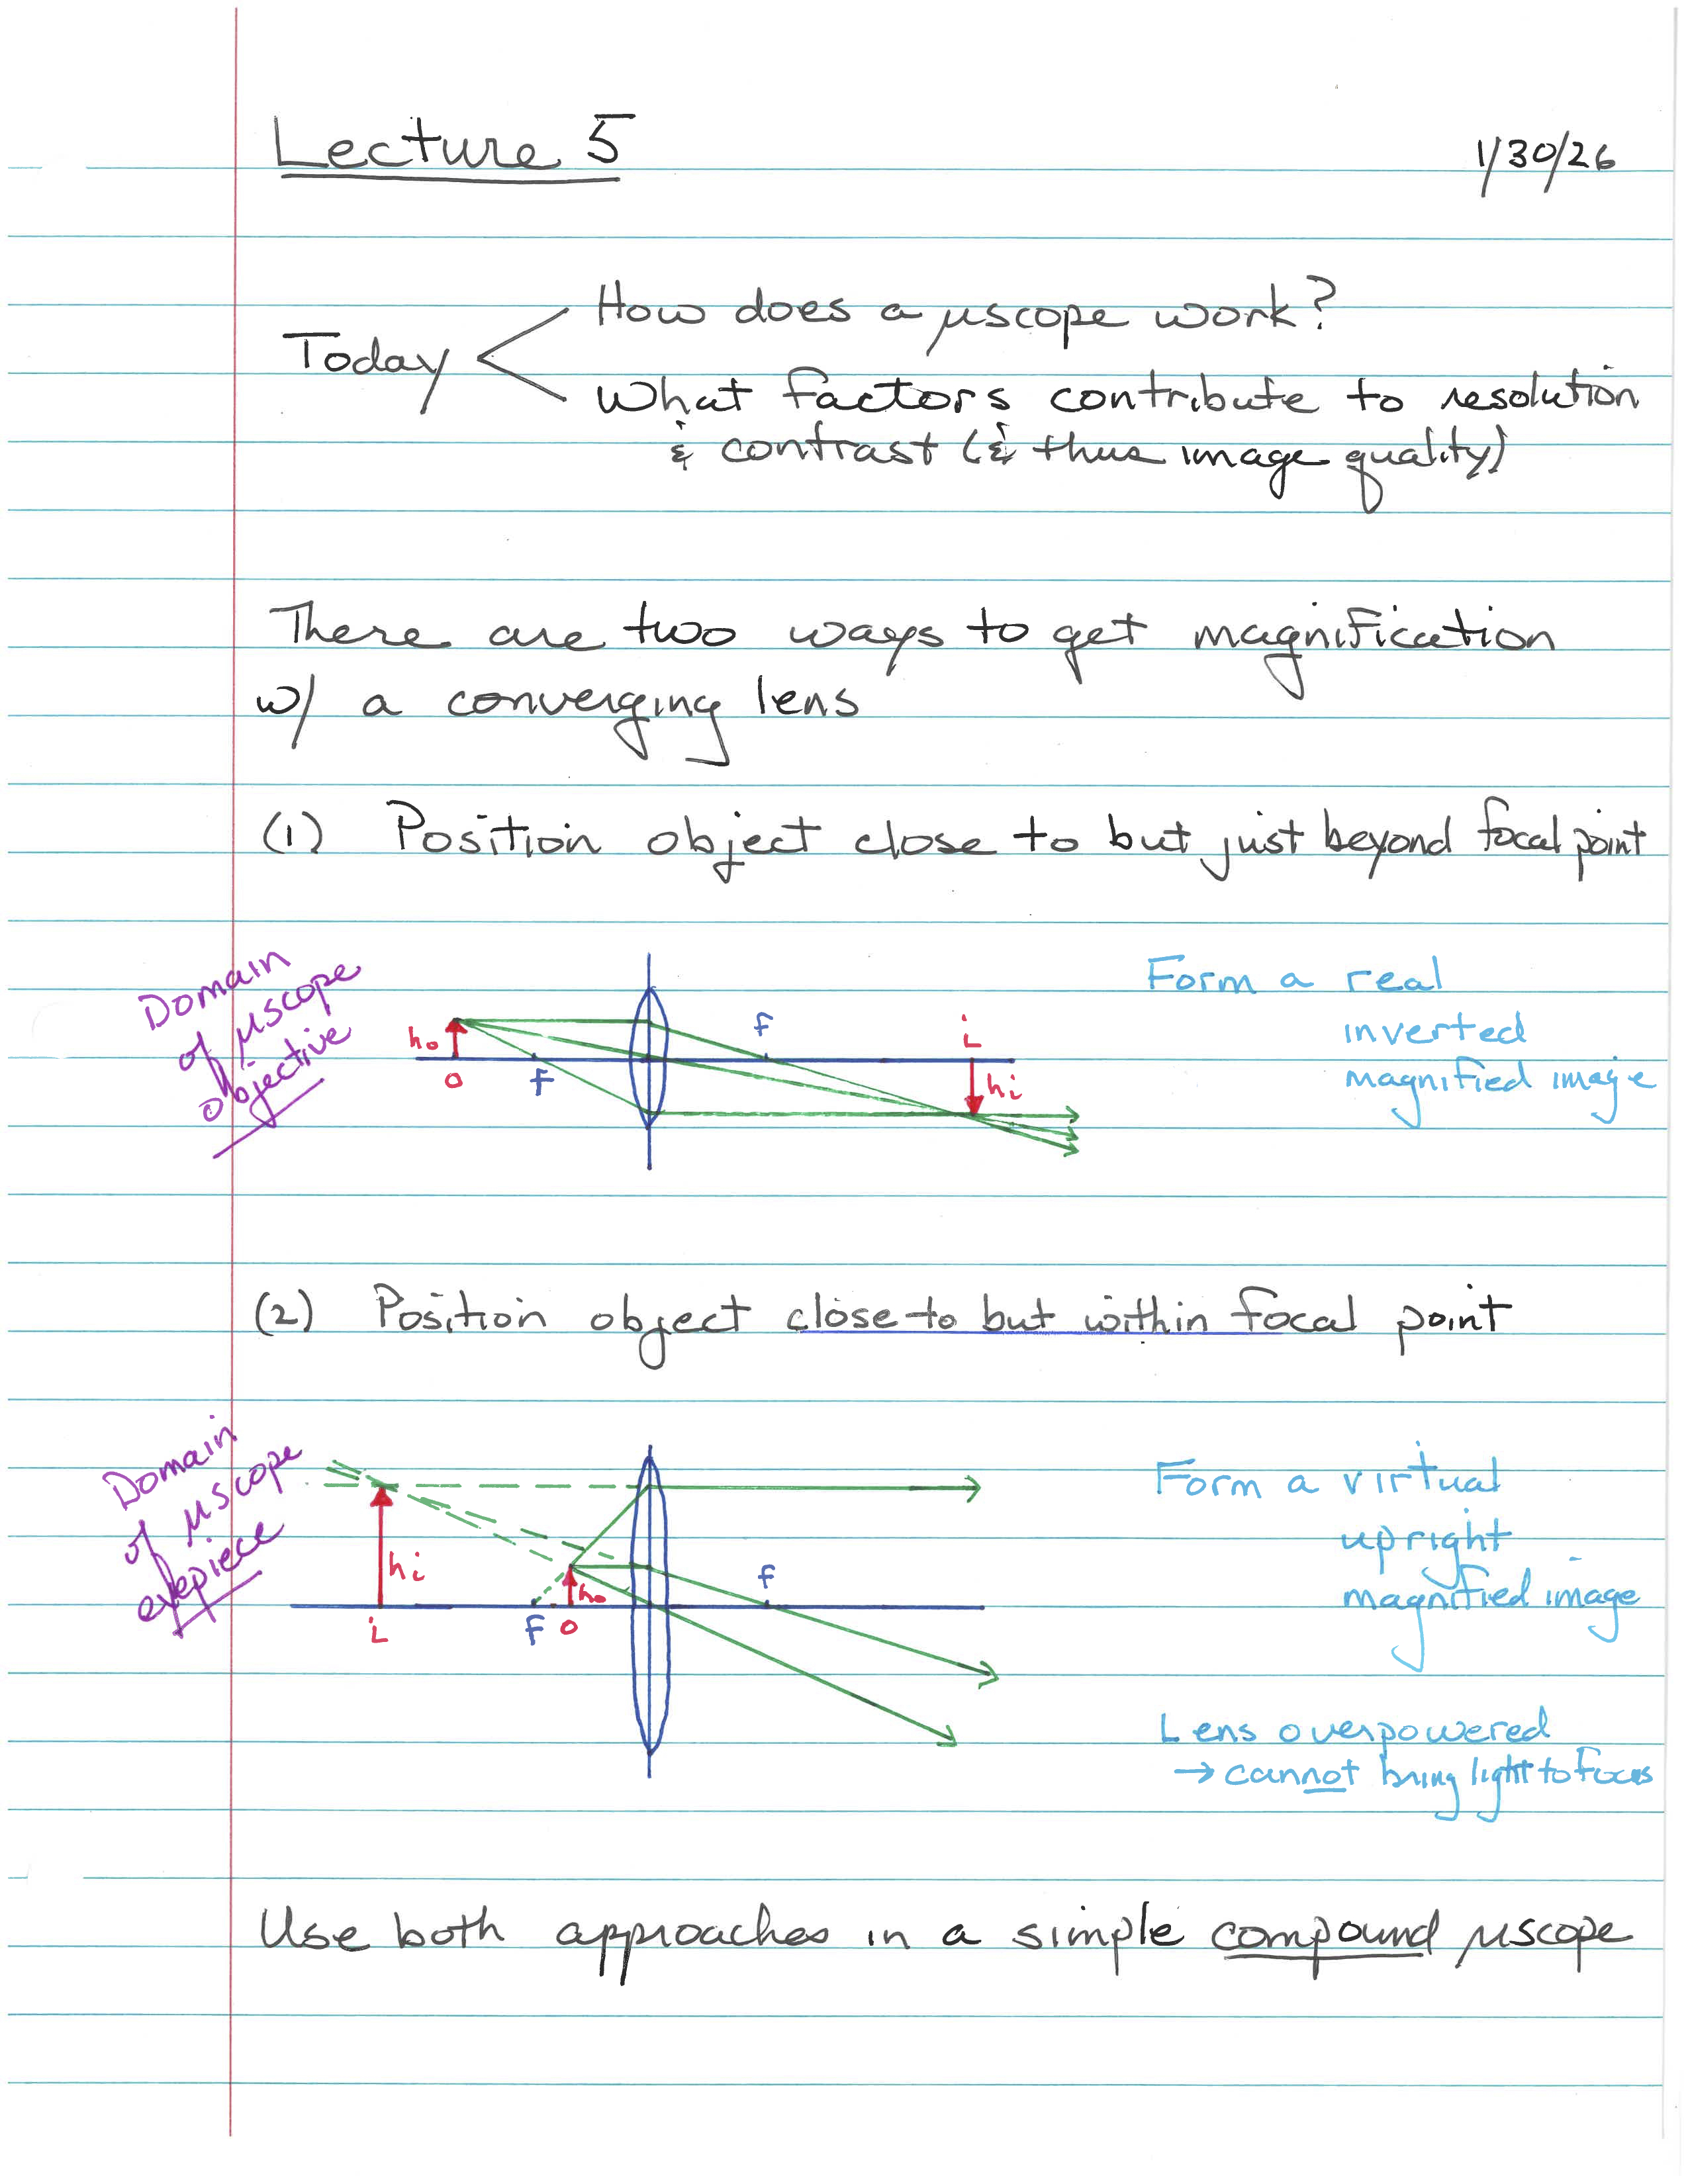 Lecture 5
1/30/26
How does a μscope work?
Today
What factors contribute to resolution
& contrast (& thus image quality)
There are two ways to get magnification
w/ a converging lens
(1) Position object close to but just beyond focal point
Domain
of μscope
objective
Form a real
inverted
magnified image
f
i
ho
o
f
hi
(2) Position object close to but within focal point
Domain
of μscope
eyepiece
Form a virtual
upright
magnified image
hi
ho
f
i
f
o
Lens overpowered
→ cannot bring light to focus
Use both approaches in a simple compound μscope